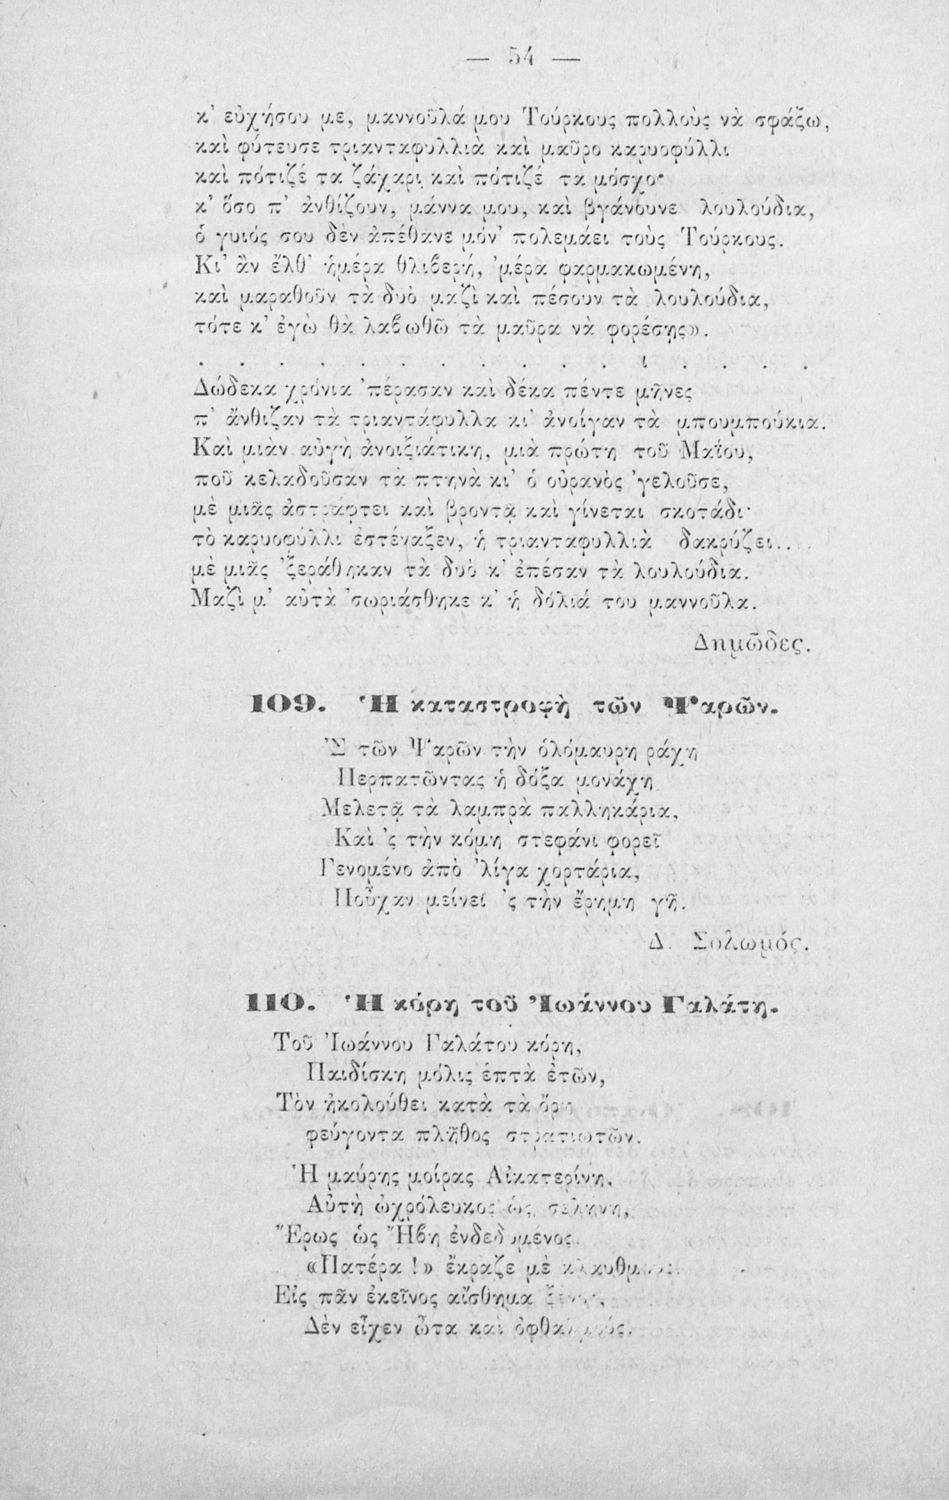 — 54 —
κ' εὐχήσου με, μαννοῦλά μου Τούρκους πολλοὺς νὰ σφάξω,
καὶ φύτευσε τριανταφυλλιὰ καὶ μαῦρο καρυοφύλλι
καὶ πότιζέ τα ζάχαρι καὶ πότιζέ τα μόσχο·
κ' ὅσο π' ἀνθίζουν, μάννα μου, καὶ βγάνουνε λουλούδια,
ὁ γυιός σου δὲν ἀπέθανε μόν' πολεμάει τοὺς Τούρκους.
Κι' ἂν ἔλθ' ἡμέρα θλιβερή, 'μέρα φαρμακωμένη,
καὶ μαραθοῦν τὰ δυὸ μαζὶ καὶ πέσουν τὰ λουλούδια,
τότε κ' ἐγὼ θὰ λαβωθῶ τὰ μαῦρα νὰ φορέσῃς».
. . . . . . . . . . . . . . . .
Δώδεκα χρόνια 'πέρασαν καὶ δέκα πέντε μῆνες
π' ἄνθιζαν τὰ τριαντάφυλλα κι' ἀνοίγαν τὰ μπουμπούκια.
Καὶ μιὰν αὐγὴ ἀνοιξιάτικη, μιὰ πρώτη τοῦ Μαΐου,
ποῦ κελαδοῦσαν τὰ πτηνὰ κι' ὁ οὐρανὸς 'γελοῦσε,
μὲ μιᾶς ἀστράφτει καὶ βροντᾷ καὶ γίνεται σκοτάδι·
τὸ καρυοφύλλι ἐστέναξεν, ἡ τριανταφυλλιὰ δακρύζει....
μὲ μιᾶς 'ξεράθηκαν τὰ δυὸ κ' ἐπέσαν τὰ λουλούδια.
Μαζὶ μ' αὐτὰ 'σωριάσθηκε κ' ἡ δόλιά του μαννοῦλα.
Δημῶδες.
109. Ἡ καταστροφὴ τῶν Ψαρῶν.
Σ τῶν Ψαρῶν τὴν ὁλόμαυρη ράχη
Περπατῶντας ἡ δόξα μονάχη
Μελετᾷ τὰ λαμπρὰ παλληκάρια,
Καὶ 'ς τὴν κόμη στεφάνι φορεῖ
Γενομένο ἀπὸ 'λίγα χορτάρια,
Ποὖχαν μείνει 'ς τὴν ἔρημη γῆ.
Δ. Σολωμός.
110. Ἡ κόρη τοῦ Ἰωάννου Γαλάτη.
Τοῦ Ἰωάννου Γαλάτου κόρη,
Παιδίσκη μόλις ἑπτὰ ἐτῶν,
Τὸν ἠκολούθει κατὰ τὰ ὄρη
φεύγοντα πλῆθος στρατιωτῶν.
Ἡ μαύρης μοίρας Αἰκατερίνη,
Αὐτὴ ὠχρόλευκος ὡς σελήνη,
Ἔρως ὡς Ἥβη ἐνδεδυμένος
«Πατέρα !» ἔκραζε μὲ κλαυθμούς.
Εἰς πᾶν ἐκεῖνος αἴσθημα
Δὲν εἶχεν ὦτα καὶ ὀφθαλμούς.